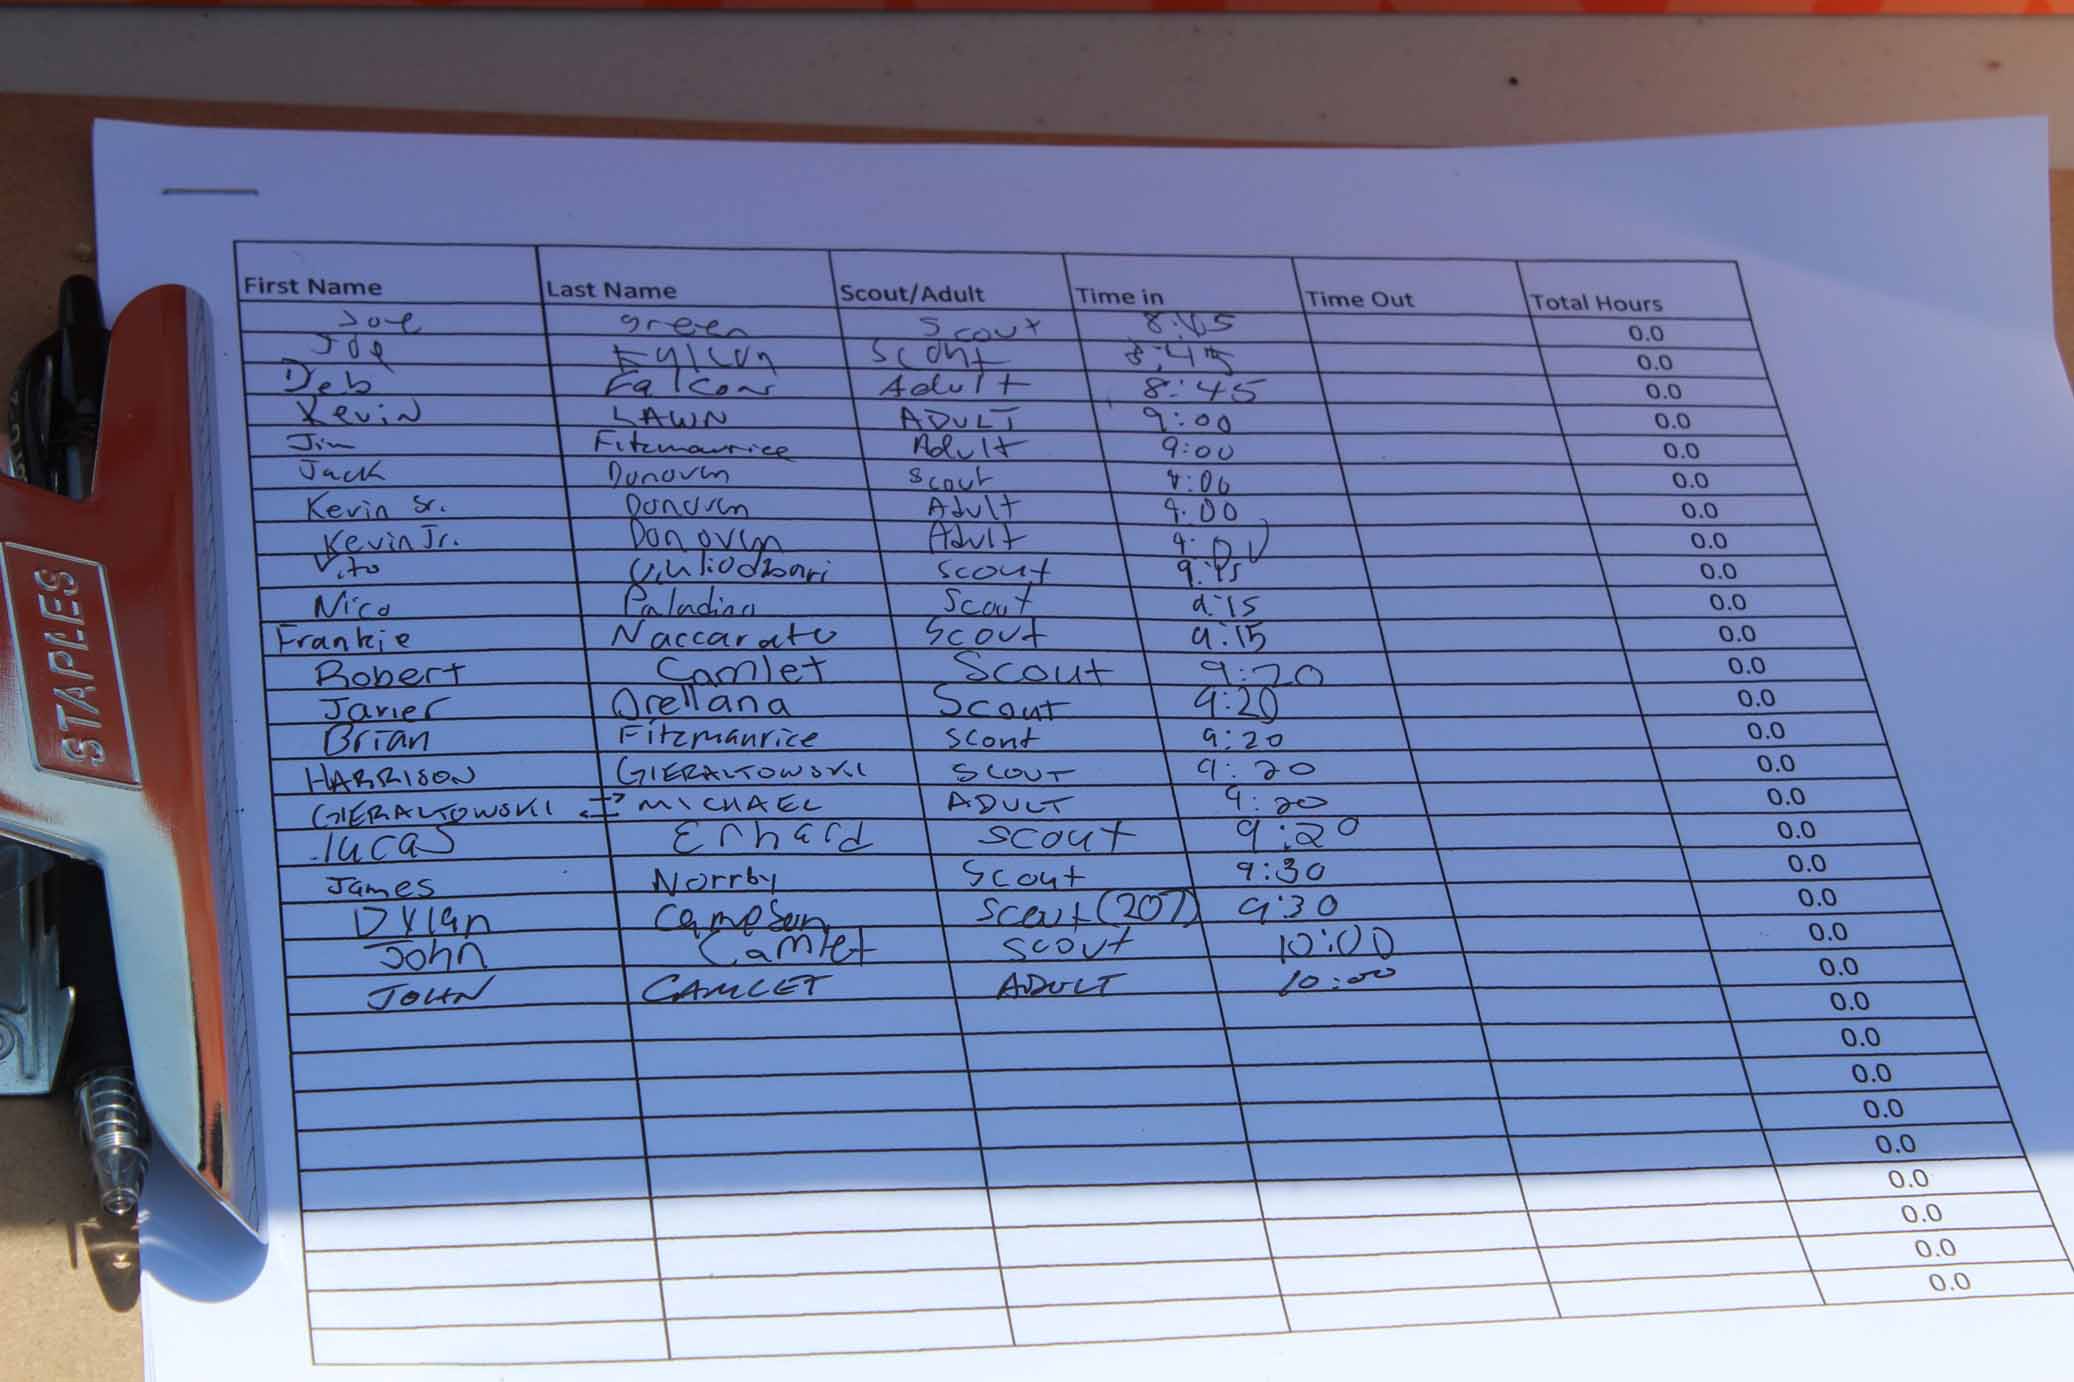 First Name Last Name Scout/Adult Time in Time Out Total Hours
Joe green Scout 0.0
Joe Scout 8:45 0.0
Deb Falcon Adult 8:45 0.0
Kevin LAWN ADULT 9:00 0.0
Jim Fitzmaurice Adult 9:00 0.0
Jack Donovan Scout 9:00 0.0
Kevin Sr. Donovan Adult 9:00 0.0
Kevin Jr. Donovan Adult 0.0
Vito scout 0.0
Nico Paladino Scout 9:15 0.0
Frankie Naccarato Scout 9:15 0.0
Robert Camlet Scout 9:20 0.0
Javier Orellana Scout 9:20 0.0
Brian Fitzmaurice scout 9:20 0.0
HARRISON GIERALTOWSKI SCOUT 9:20 0.0
GIERALTOWSKI MICHAEL ADULT 9:20 0.0
lucas Erhard scout 9:20 0.0
James Norrby Scout 9:30 0.0
Dylan Scout (207) 9:30 0.0
John Camlet scout 10:00 0.0
JOHN CAMLET ADULT 10:00 0.0
0.0
0.0
0.0
0.0
0.0
0.0
0.0
0.0
0.0
STAPLES